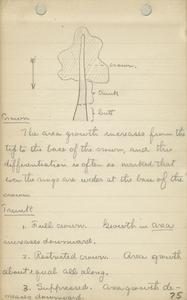 crown.
trunk
butt
Crown
The area growth increases from the
tip to the base of the crown, and this
differentiation is often so marked that
even the rings are wider at the base of the
crown
Trunk
1. Full crown. Growth in area
increases downward.
2. Restricted crown. Area growth
about equal all along.
3. Suppressed. Area growth de-
creases downward.
75